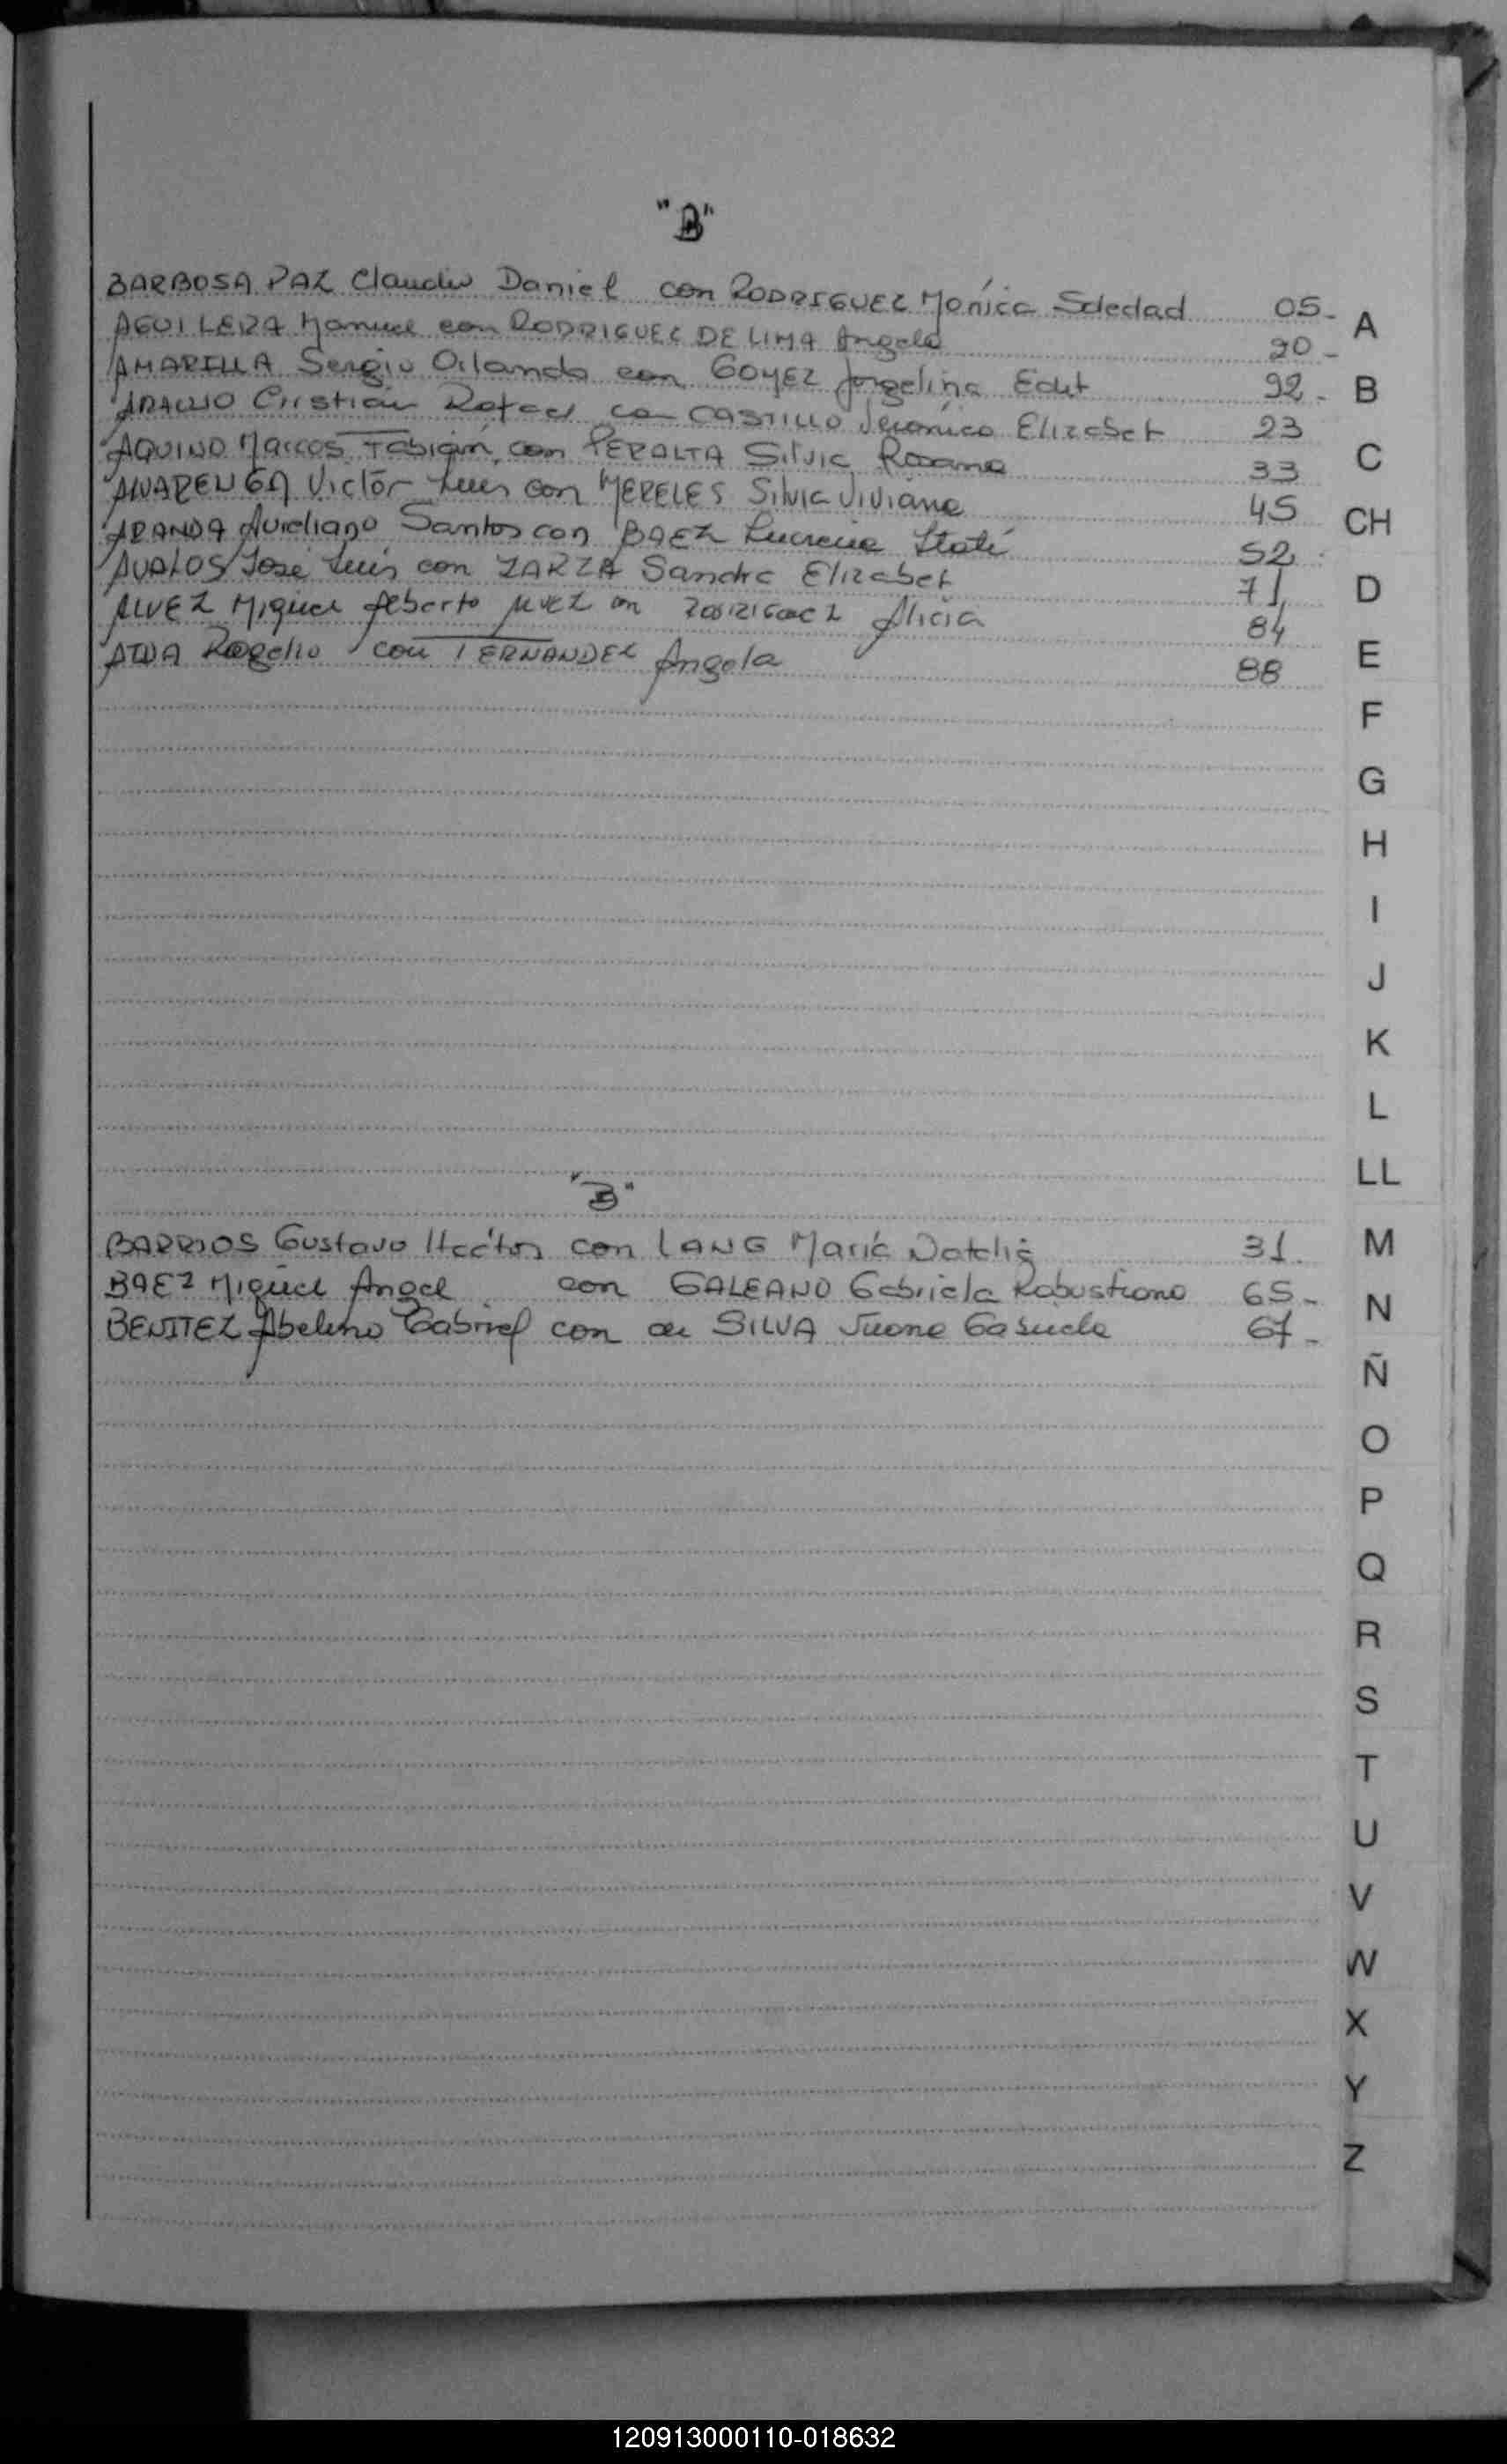 "B"
BARBOSA PAZ Claudio Daniel con RODRIGUEZ Monica Soledad 05-
AGUILERA Manuel con RODRIGUEZ DE LIMA Angela 20-
A
AMARILLA Sergio Orlando con GOMEZ Jorgelina Edit 92-
B
ARAUJO Cristian Rafael con CASTILLO Veronica Elizabet 23
AQUINO Marcos Fabian con PERALTA Silvia Roxana 33
C
ALVARENGA Victor Luis con MERELES Silvia Viviana 45
CH
ARANDA Aureliano Santos con BAEZ Lucrecia Itatí 52
AVALOS Jose Luis con ZARZA Sandra Elizabet 71
D
ALVEZ Miguel Alberto con Alicia 84
ALVA Rogelio con FERNANDEZ Angela 88
E
F
G
H
I
J
K
L
LL
"B"
BARRIOS Gustavo Hector con LANG María Natalia 31
M
BAEZ Miguel Angel con GALEANO Gabriela Robustiana 65-
N
BENITEZ Abelino Gabriel con DA SILVA Juana 67-
Ñ
O
P
Q
R
S
T
U
V
W
X
Y
Z
120913000110-018632